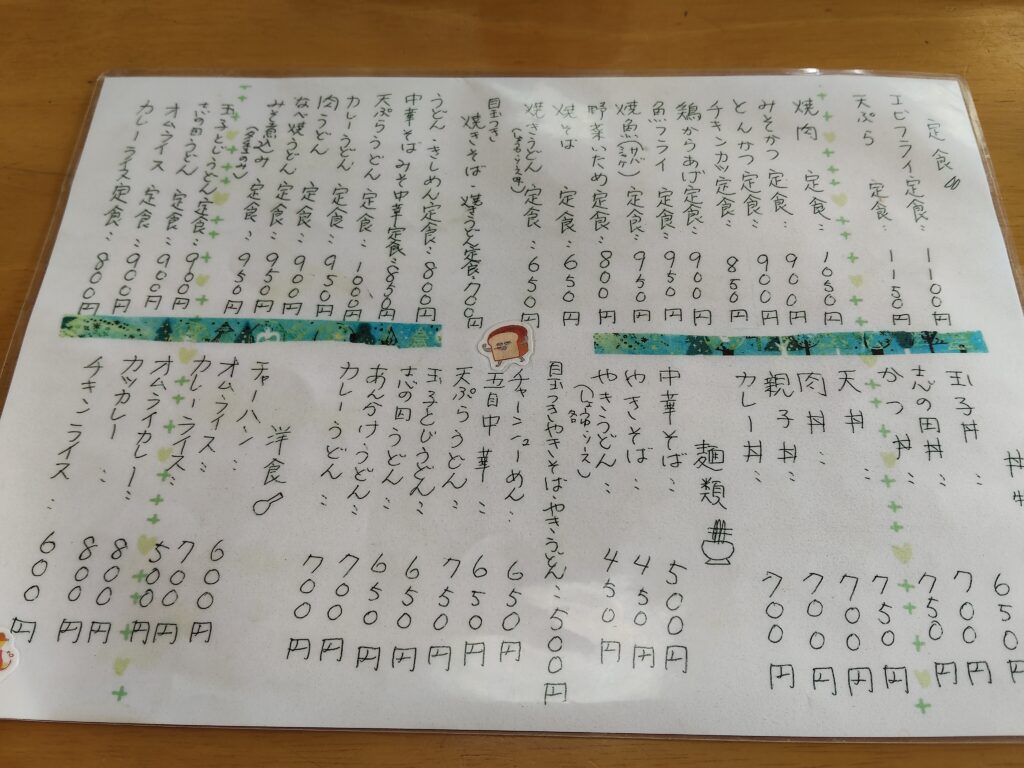 定食
エビフライ定食‥1100円
天ぷら 定食‥1150円
焼肉 定食‥1050円
みそかつ定食‥900円
とんかつ定食‥900円
チキンカツ定食‥850円
鶏からあげ定食‥900円
魚フライ 定食‥950円
焼魚(サバ サケ) 定食‥950円
野菜いため定食‥800円
焼そば 定食‥650円
焼きうどん 定食‥650円
目玉つき
焼きそば・焼きうどん定食‥700円
うどん・きしめん定食‥800円
中華そばみそ中華定食‥850円
天ぷらうどん 定食‥1000円
カレーうどん 定食‥950円
肉うどん 定食‥900円
なべ焼うどん 定食‥950円
みそ煮込み 定食‥950円
玉子とじうどん定食‥900円
志の田うどん 定食‥900円
オムライス 定食‥900円
カレーライス定食‥800円
丼
玉子丼‥650円
志の田丼‥700円
かつ丼‥750円
天丼‥750円
肉丼‥700円
親子丼‥700円
カレー丼‥700円
麺類
中華そば‥500円
やきそば‥450円
やきうどん‥450円
(しょうゆソース)
目玉つきやきそば・やきうどん‥500円
チャーシューめん‥650円
五目中華‥650円
天ぷらうどん‥750円
玉子とじうどん‥650円
志の田うどん‥650円
あんかけうどん‥700円
カレーうどん‥700円
洋食
チャーハン‥600円
オムライス‥700円
カレーライス‥500円
オムライカレー‥800円
カツカレー‥800円
チキンライス‥600円